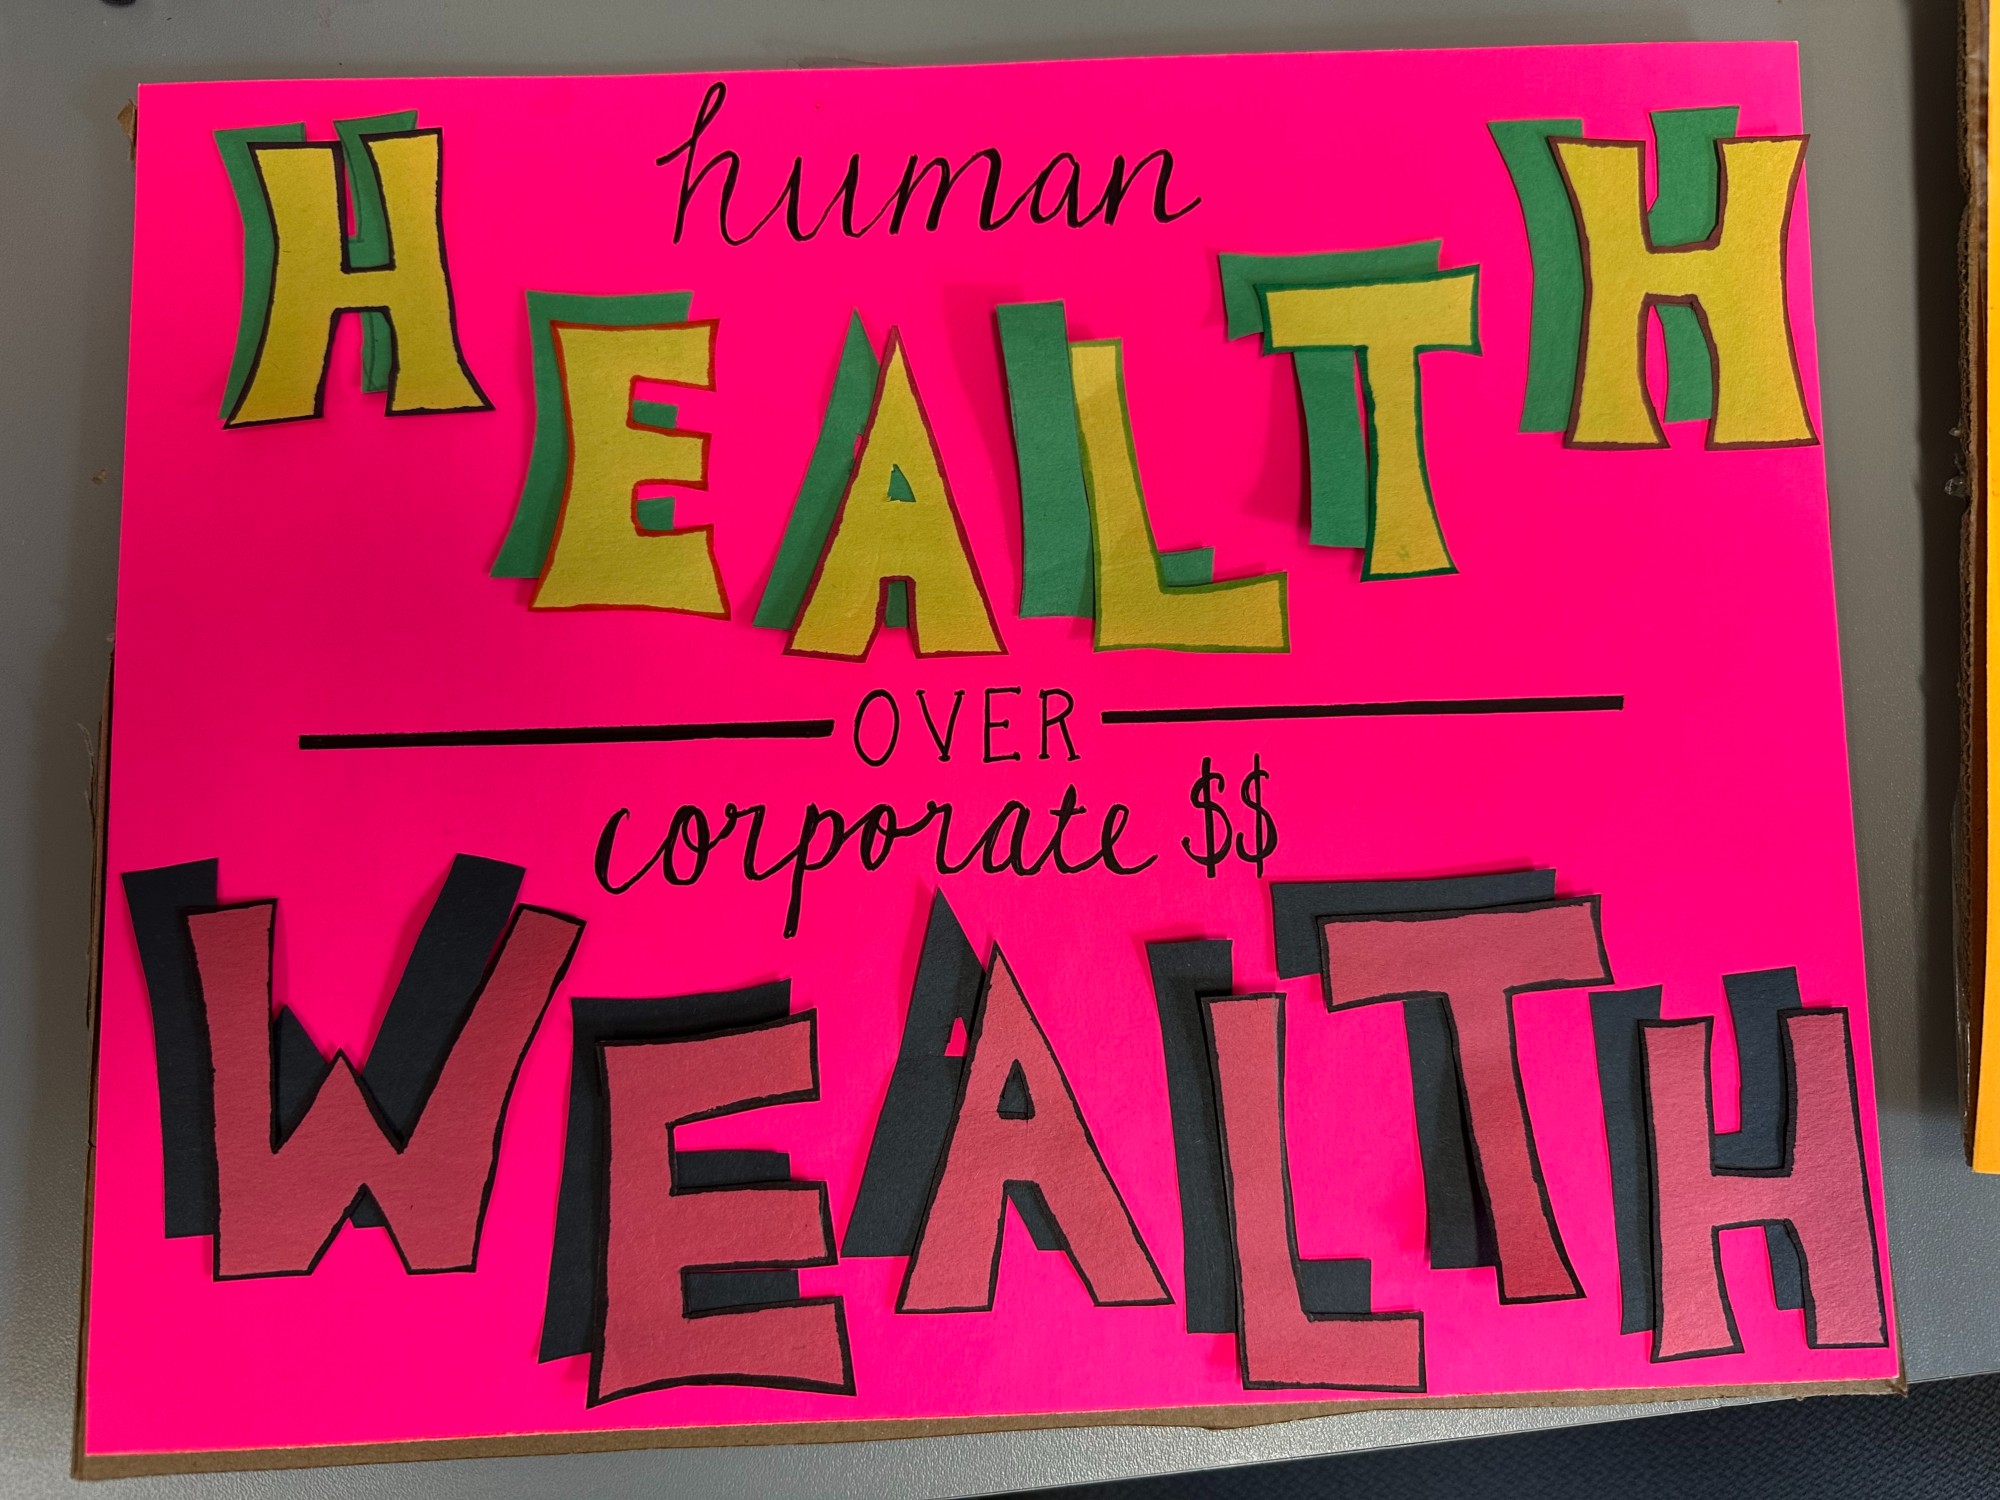 human
HEALTH
OVER
corporate $$
WEALTH